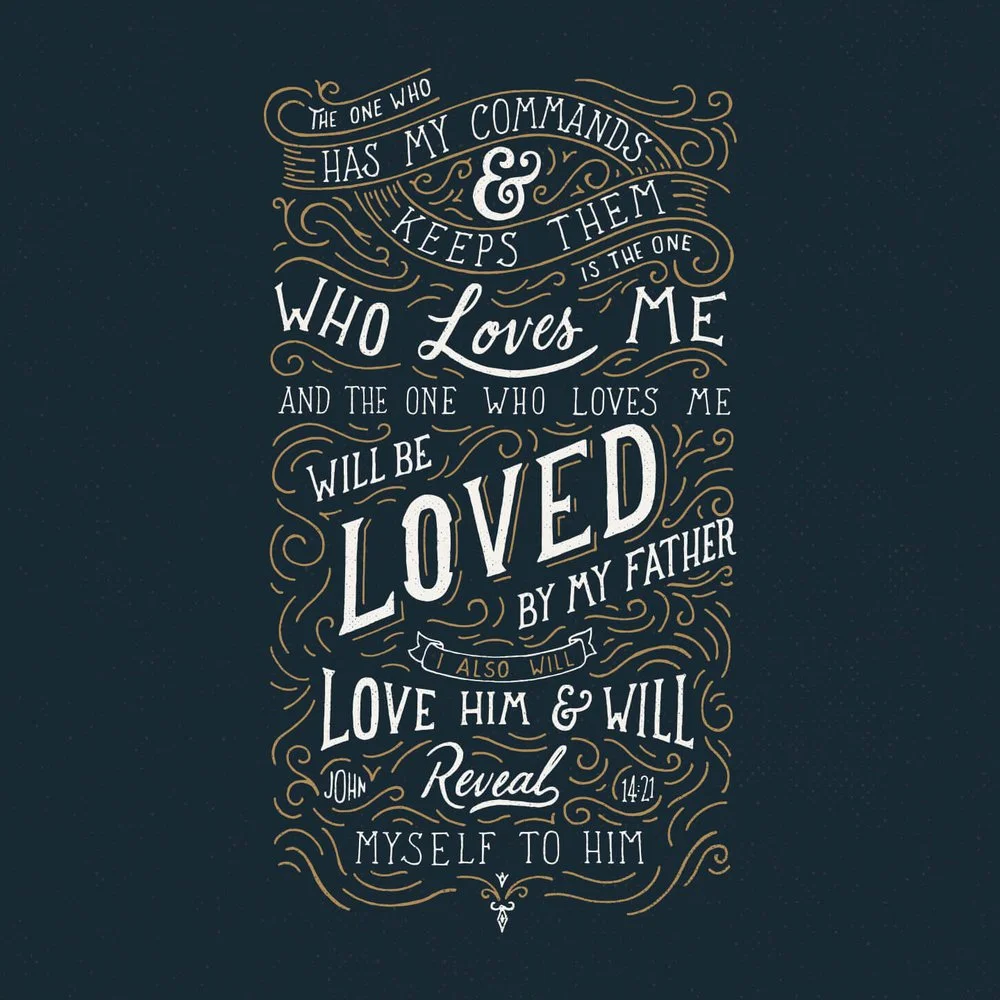 THE ONE WHO
HAS MY COMMANDS
&
KEEPS THEM
IS THE ONE
WHO Loves ME
AND THE ONE WHO LOVES ME
WILL BE
LOVED
BY MY FATHER
I ALSO WILL
LOVE HIM & WILL
JOHN Reveal 14:21
MYSELF TO HIM